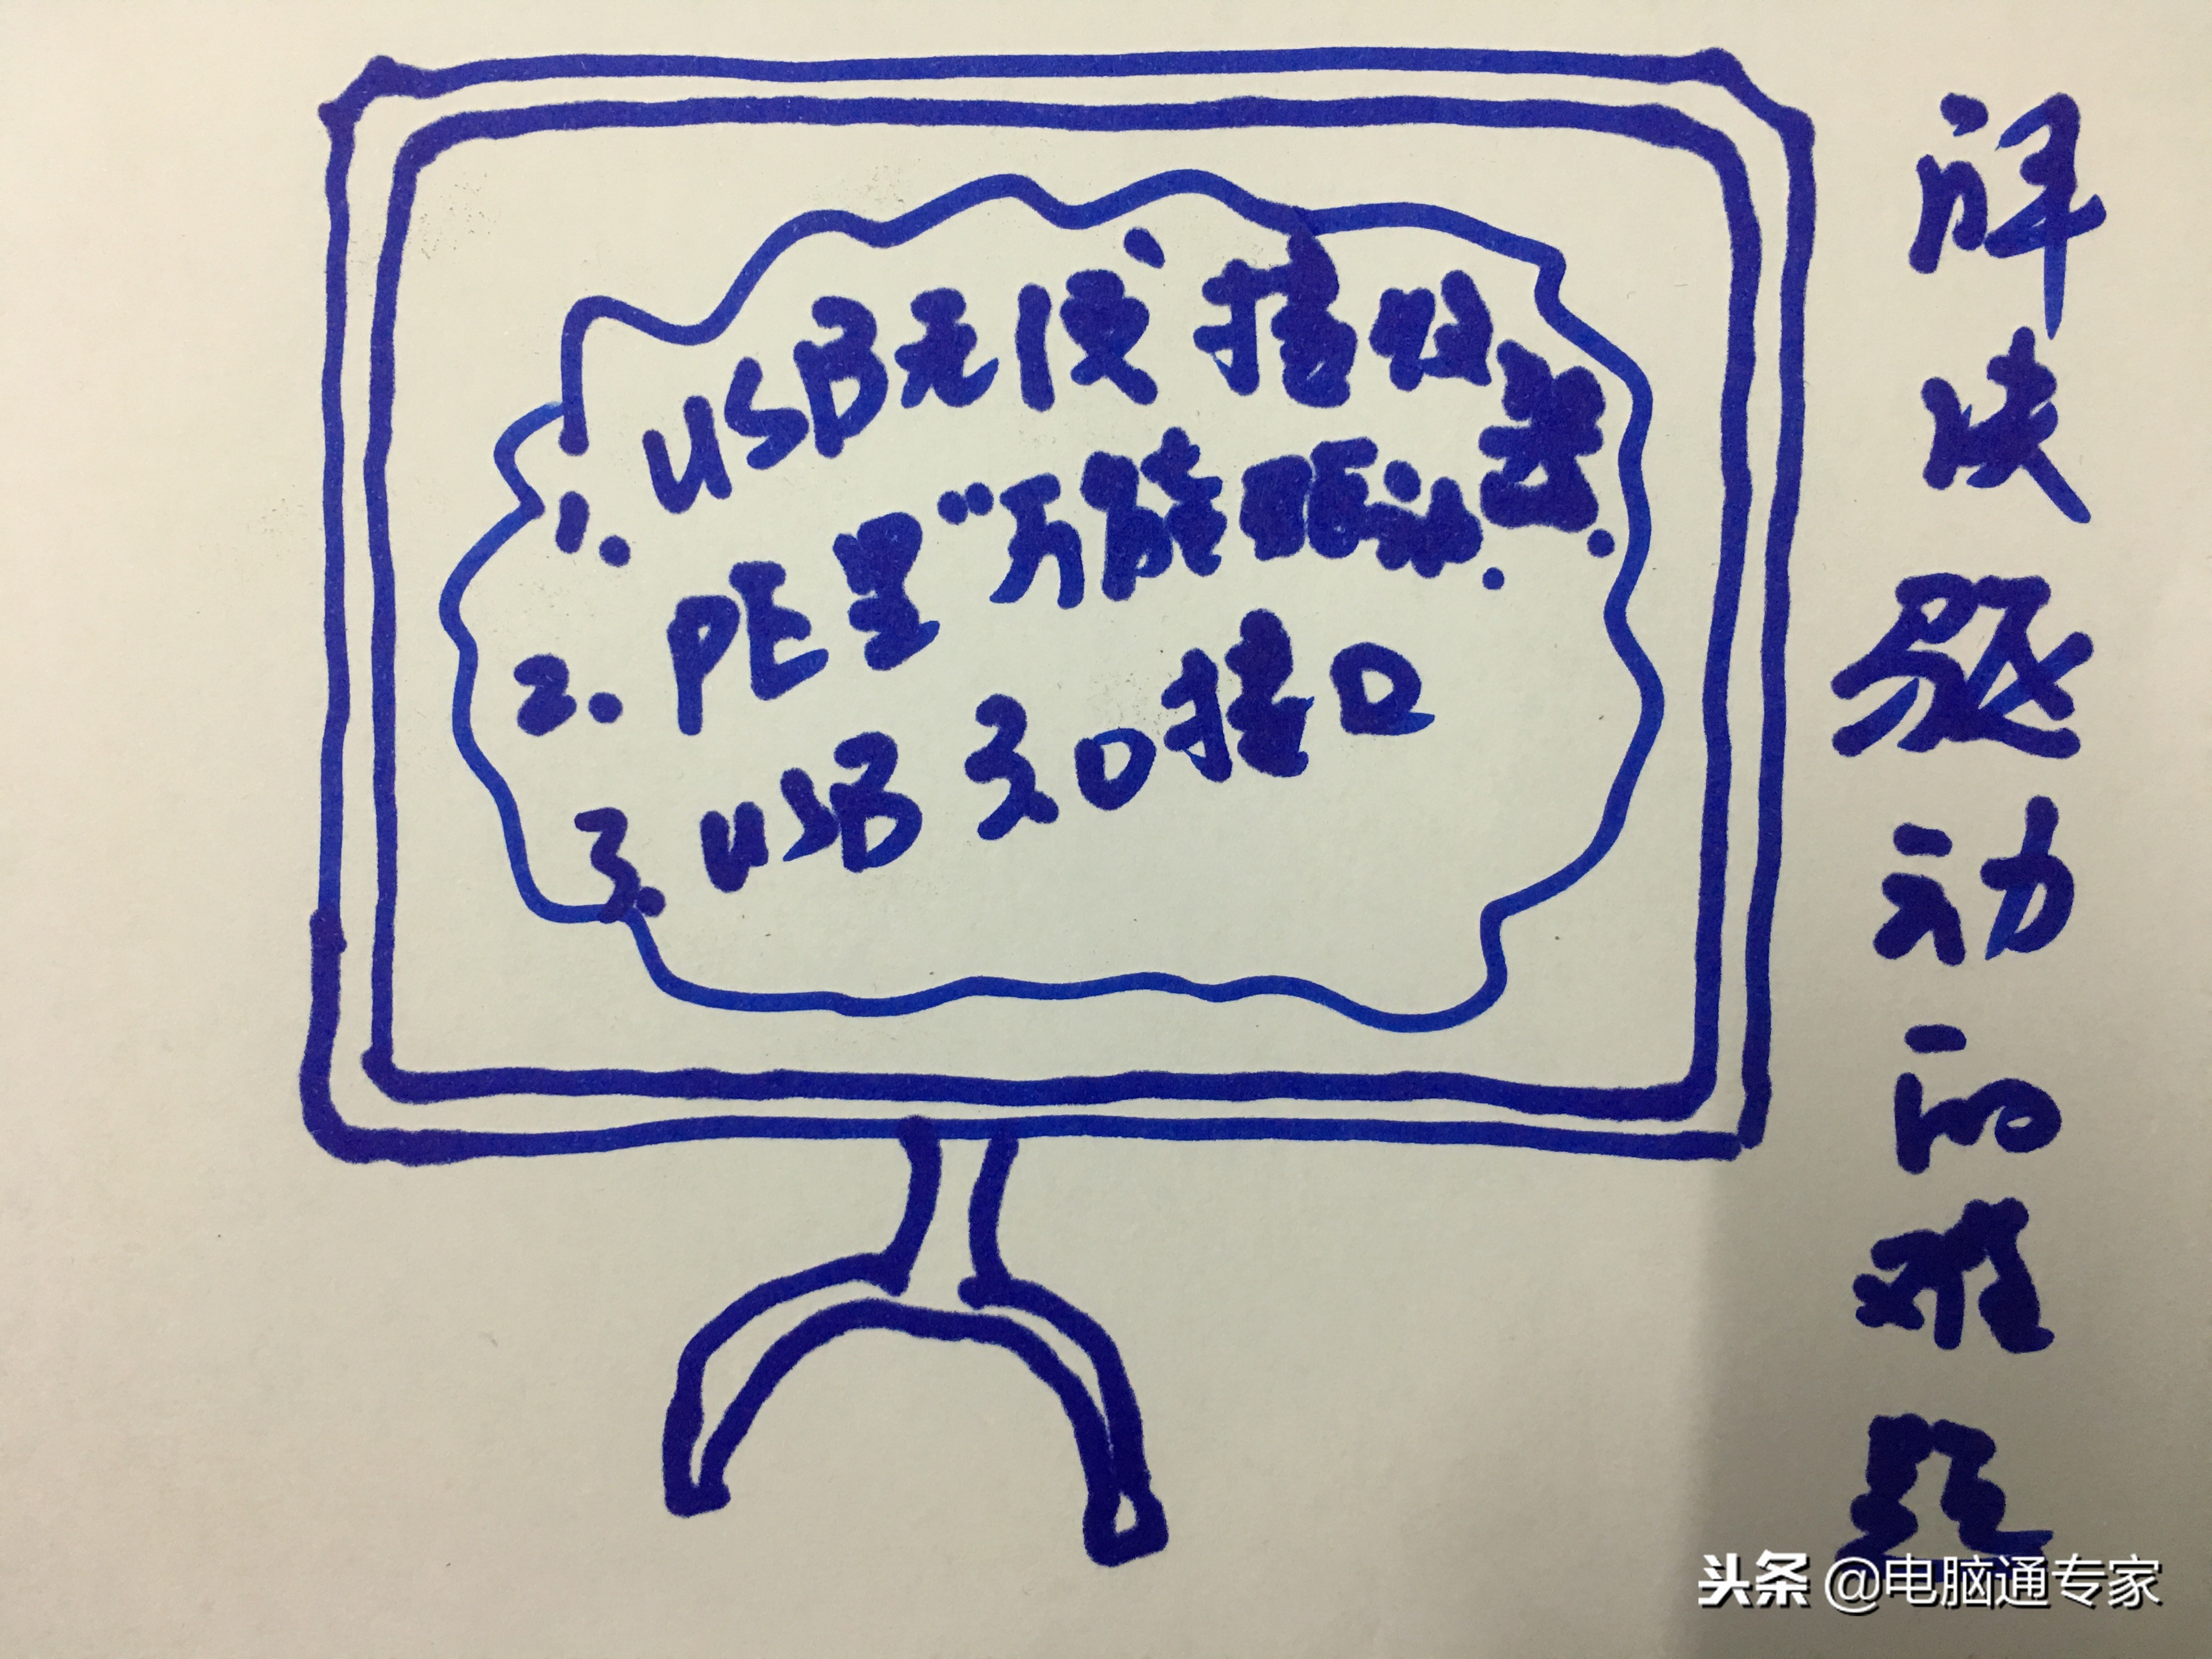 1. USB无线接收器.
2. PE里"万能驱动.
3. USB 3.0接口
解决驱动的难题
头条 @电脑通专家